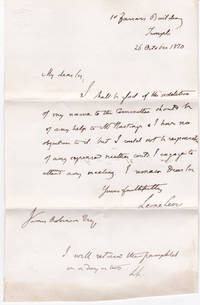 Buildings
Temple
26 October 1870
My dear Sir,
I shall be glad if the addition
of my name to the Committee should be
of any help to Mr Hastings & I have no
objection to it but I could not be responsible
of any expenses neither could I engage to
attend any meeting I remain Dear Sir
Yours faithfully
Leone Levi
James Robinson Esq
I will return the pamphlet
in a day or two LL